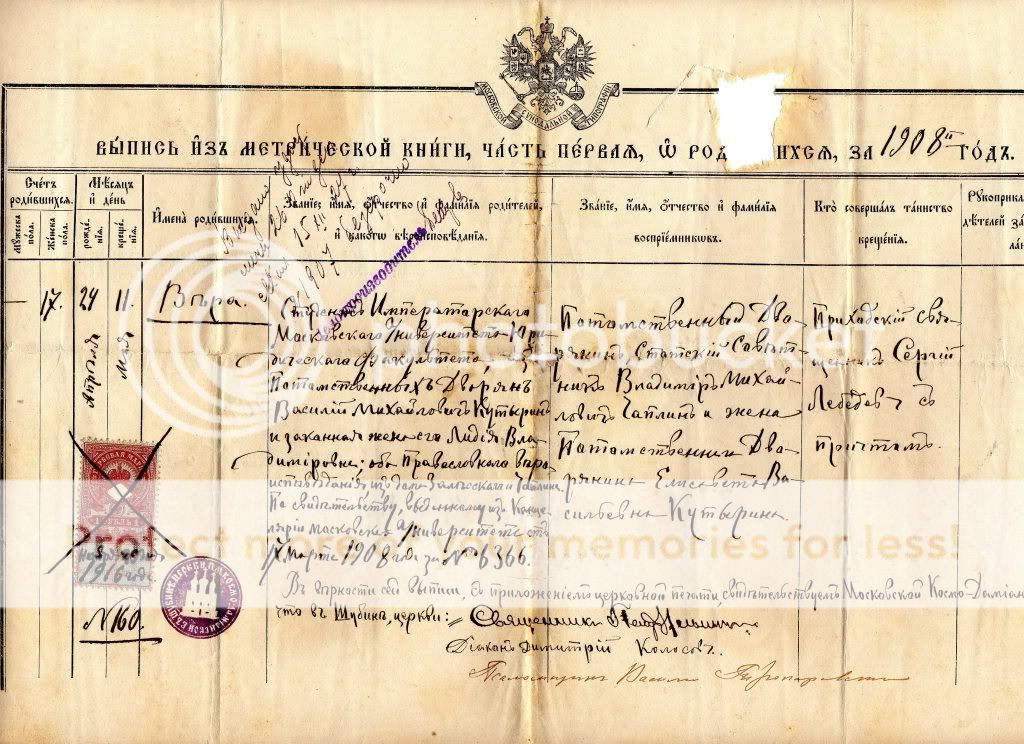 МОСКОВСКОЙ СѴНОДАЛЬНОЙ ТИПОГРАФІИ
ВЫПИСЬ ИЗЪ МЕТРИЧЕСКОЙ КНИГИ, ЧАСТЬ ПЕРВАЯ, Ѿ РОД ИХСЯ, ЗА 1908й ГОДЪ.
Счетъ родившихся.
Мужеска пола.
Женска пола.
Мѣсяцъ и день
рожденія.
крещенія.
Имена родившихся.
Званіе, имя, отчество и фамилія родителей,
и какого вѣроисповѣданія.
Званіе, имя, отчество и фамилія
воспріемниковъ.
Кто совершалъ таинство
крещенія.
Рукоприкл
дѣтелей за
лан
17.
24
11.
мая
Вѣра.
Студентъ Императорскаго
Московскаго Университета Юри-
дическаго Факультета, изъ
Потомственныхъ Дворянъ
Василій Михайловичъ Кутыринъ
и законная жена его Лидія Вла-
диміровна; оба Православнаго вѣро-
исповѣданія
По свидѣтельству, выданному изъ Канце-
ляріи Московскаго Университета отъ
Марта 1908 года за № 6366.
Потомственный Дво-
рянинъ, Статскій Совѣт-
никъ Владиміръ Михай-
ловичъ Чаплинъ и жена
Потомственнаго Дво-
рянина Елисавета Ва-
сильевна Кутырина.
Приходскій Свя-
щенникъ Сергій
Лебедевъ съ
причтомъ.
1916 года
№ 160.
Въ вѣрности сей выписи, съ приложеніемъ церковной печати, свидѣтельствуемъ Московской Космо-Даміан
что въ Шубинѣ, церкви:
Священникъ
Діаконъ Димитрій Колосовъ.
Псаломщикъ Василій
photobucket
Protect more of your memories for less!